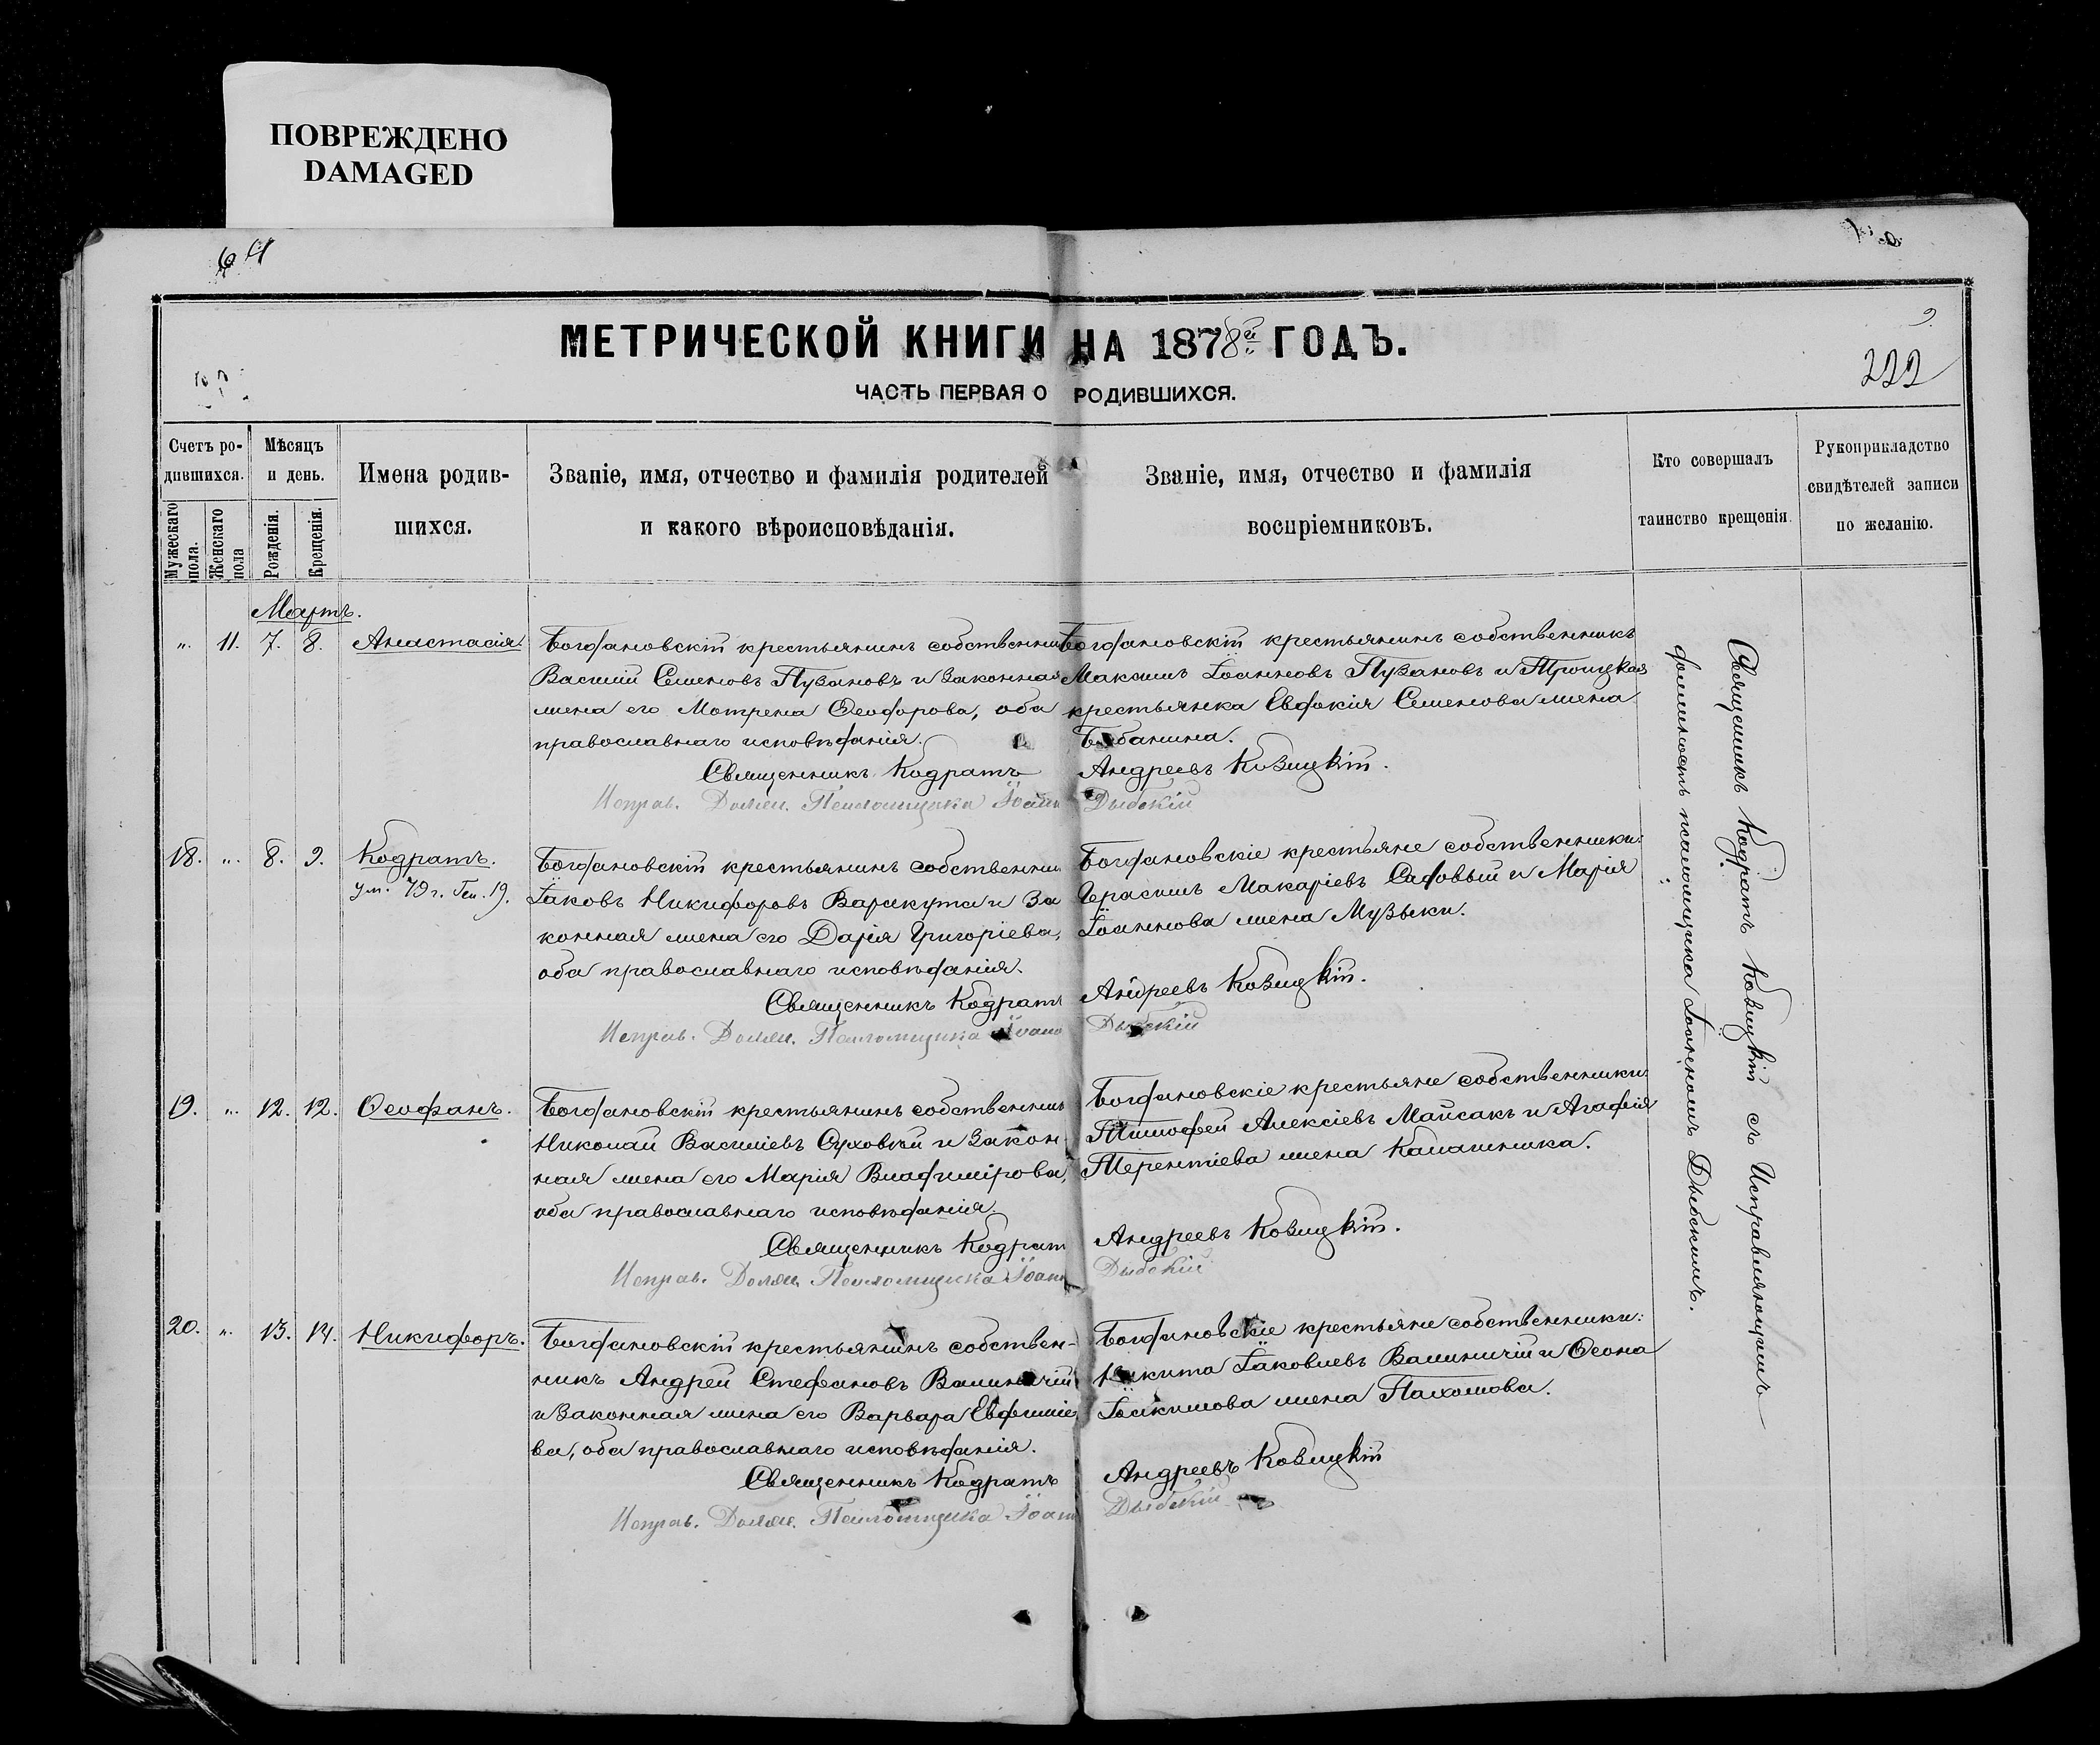 ПОВРЕЖДЕНО
DAMAGED
МЕТРИЧЕСКОЙ КНИГИ НА 1878й ГОДЪ.
222
ЧАСТЬ ПЕРВАЯ О РОДИВШИХСЯ.
Счетъ ро-
дившихся.
Мужескаго пола.
Женскаго пола
Мѣсяцъ
и день.
Рожденія.
Крещенія.
Имена родив-
шихся.
Званіе, имя, отчество и фамилія родителей
и какого вѣроисповѣданія.
Званіе, имя, отчество и фамилія
воспріемниковъ.
Кто совершалъ
таинство крещенія.
Рукоприкладство
свидѣтелей записи
по желанію.
Мартъ.
„ 11. 7. 8. Анастасія.
Богдановскій крестьянинъ собственни
Василій Семеновъ Пузановъ и законная
жена его Мотрена Ѳеодорова, оба
православнаго исповѣданія.
Богдановскій крестьянинъ собственникъ
Максимъ Іоанновъ Пузановъ и Троицкая
крестьянка Евдокія Семенова жена
Священникъ Кодратъ Андреевъ Козицкій.
Исправ. Должн. Псаломщика Іоанн Дыбскій
18. „ 8. 9. Кодратъ.
ум. 79 г. Ген. 19.
Богдановскій крестьянинъ собственни
Іаковъ Никифоровъ Варакута и за
конная жена его Дарія Григоріева,
оба православнаго исповѣданія.
Богдановскіе крестьяне собственники:
Герасимъ Макаріевъ Садовый и Марія
Іоаннова жена Музыки.
Священникъ Кодратъ Андреевъ Козицкій.
Исправ. Должн. Псаломщика Іоанн Дыбскій
19. „ 12. 12. Ѳеофанъ.
Богдановскій крестьянинъ собственникъ
Николай Василіевъ Суховѣй и закон-
ная жена его Марія Владимірова,
оба православнаго исповѣданія.
Богдановскіе крестьяне собственники:
Тимофей Алексіевъ Майсакъ и Агафія
Терентіева жена Калашника.
Священникъ Кодрат Андреевъ Козицкій.
Исправ. Должн. Псаломщика Іоанн Дыбскій
20. „ 13. 14. Никифоръ.
Богдановскій крестьянинъ собствен-
никъ Андрей Стефановъ Валиничій
и законная жена его Варвара Евфиміе
ва, оба православнаго исповѣданія.
Богдановскіе крестьяне собственники:
Никита Іаковлевъ Валиничій и Ѳеона
Іоакимова жена Пахомова.
Священникъ Кодратъ Андреевъ Козицкій
Исправ. Должн. Псаломщика Іоанн Дыбскій
Священникъ Кодратъ Козицкій съ Исправляющимъ
должность псаломщика Іоанномъ Дыбскимъ.